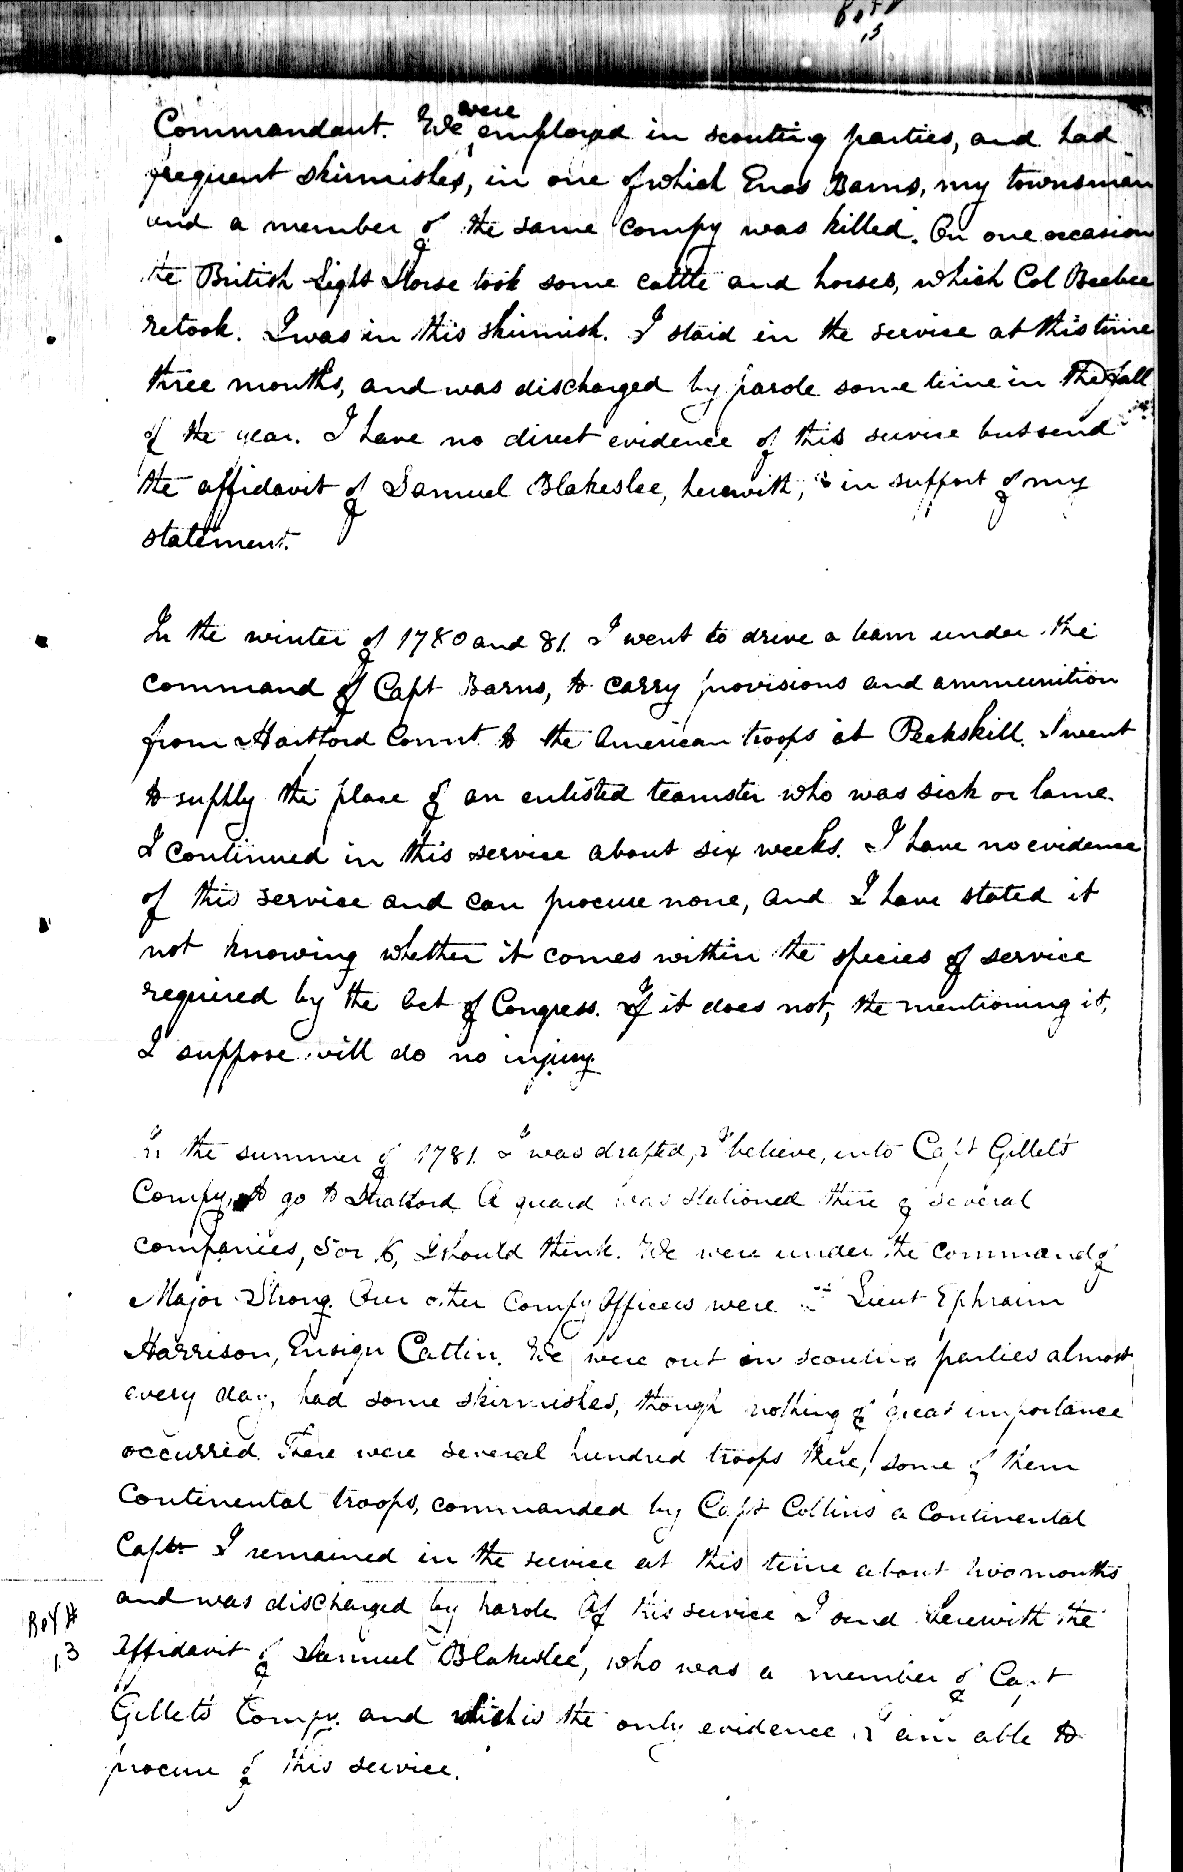 Commandant. We were employed in scouting parties, and had
frequent skirmishes, in one of which Enos Barns, my townsman
and a member of the same compy was killed. On one occasion
the British Light Horse took some cattle and horses, which Col Beebee
retook. I was in this skirmish. I staid in the service at this time
three months, and was discharged by parole some time in the fall
of the year. I have no direct evidence of this service but send
the affidavit of Samuel Blakeslee, herewith, in support of my
statement.
In the winter of 1780 and 81. I went to drive a team under the
command of Capt Barns, to carry provisions and ammunition
from Hartford Connt. to the American troops at Peekskill. I went
to supply the place of an enlisted teamster who was sick or lame.
I continued in this service about six weeks. I have no evidence
of this service and can procure none, and I have stated it
not knowing whether it comes within the species of service
required by the Act of Congress. If it does not, the mentioning it,
I suppose will do no injury
In the summer of 1781. I was drafted, I believe, into Capt Gillet's
Compy, to go to Stratford. A guard was stationed there of several
companies, 5 or 6, I should think. We were under the command of
Major Strong. Our other Compy Officers were Lieut Ephraim
Harrison, Ensign Catlin. We were out in scouting parties almost
every day, had some skirmishes, though nothing of great importance
occurred. There were several hundred troops there, some of them
Continental troops, commanded by Capt Collins a Continental
Capt. I remained in the service at this time about two months
and was discharged by parole. Of this service I send herewith the
affidavit of Samuel Blakeslee, who was a member of Capt
Gillet's Compy. and which is the only evidence I am able to
procure of this service.